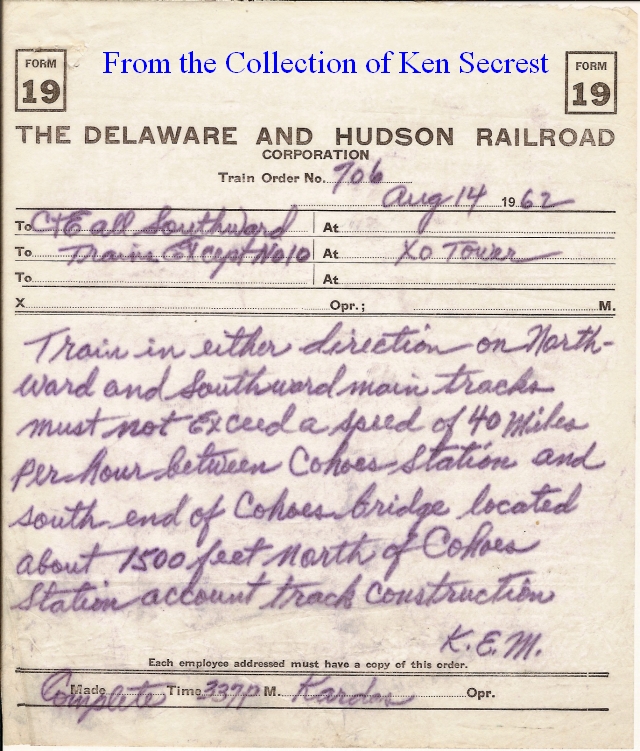 From the Collection of Ken Secrest
FORM 19
FORM 19
THE DELAWARE AND HUDSON RAILROAD
CORPORATION
Train Order No. 706
Aug 14 1962
To C+E all Southward At
To Trains Except No 10 At XO Tower
To At
X Opr.; M.
Train in either direction on North-
ward and Southward main tracks
must not Exceed a speed of 40 Miles
Per hour between Cohoes Station and
south end of Cohoes bridge located
about 1500 feet north of Cohoes
Station account track construction
K.E.M.
Each employee addressed must have a copy of this order.
Made Complete Time 337P M. Kardos Opr.